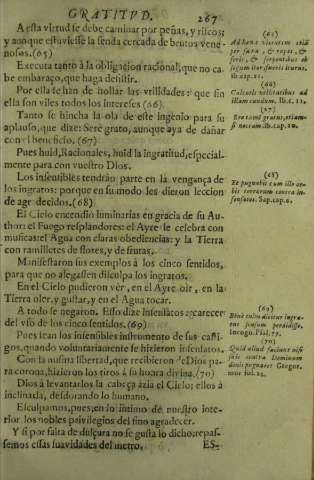 GRATITVD. 267
A esta virtud se debe caminar por peñas, y riscos;
y aunque estuviesse la senda cercada de brutos vene-
nosos. (65)
Executa tanto à la obligacion racional, que no ca-
be embaraço, que haga desistir.
Por ella se han de hollar las vtilidades: que sin
ella son viles todos los interesses (66).
Tanto se hincha la ola de este ingenio para su
aplauso, que dize: Serè grato, aunque aya de dañar
con el beneficio. (67)
Pues huid, Racionales, huid la ingratitud, especial-
mente para con vuestro Dios.
Los insensibles tendràn parte en la vengança de
los ingratos: porque en su modo les dieron leccion
de agradecidos. (68)
El Cielo encendiò luminarias en gracia de su Au-
thor: el Fuego resplandores: el Ayre le celebra con
musicas: el Agua con claras obediencias: y la Tierra
con ramilletes de flores, y de frutas.
Manifestaron sus exemplos à los cinco sentidos,
para que no alegassen disculpa los ingratos.
En el Cielo pudieron ver, en el Ayre oir, en la
Tierra oler, y gustar, y en el Agua tocar.
A todo se negaron. Esso dize insensatos: carecer
del vso de los cinco sentidos. (69)
Pues sean los insensibles instrumento de sus casti-
gos, quando voluntariamente se hizieron insensatos.
Con la misma libertad, que recibieron de Dios pa-
ra corona, hizieron los tiros à su honra divina. (70)
Dios à levantarles la cabeça àzia el Cielo; ellos à
inclinarla, desdorando lo humano.
Esculpamos, pues, en lo intimo de nuestro inte-
rior los nobles privilegios del fino agradecer.
Y si por falta de dulçura no se gusta lo dicho: repas-
semos essas suavidades del metro.
ES-
(65)
Ad hanc virtutem etiam
per saxa, & rupes, &
feris, & serpentibus ob-
sequium iter fuerit iturus.
lib. cap. 21.
(66)
Calcatis vtilitatibus ad
illam eundum. lib. c. 21.
(67)
Ero tamen gratus, etiam-
si nocturam. lib. cap. 20.
(68)
Et pugnabit cum illo or-
bis terrarum contra in-
sensatos. Sap. cap. 6.
(69)
Benè cultu dicitur ingra-
tus sensum perdidisse.
Incogn. Psal. 72.
(70)
Quid aliud faciunt nisi
suis contra Dominum
donis pugnare? Gregor.
mor. lib. 25.